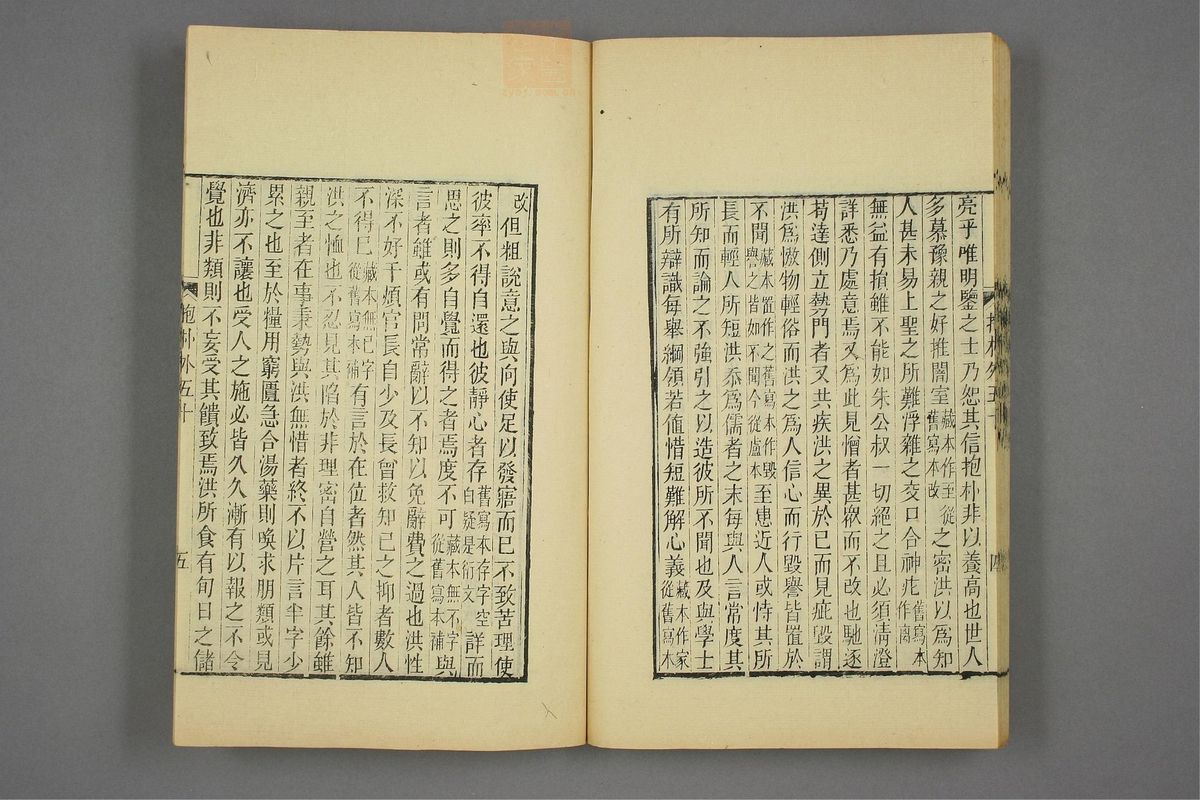 亮乎唯明鑒之士乃恕其信抱朴非以養高也世人
多慕豫親之好推闇室藏本作至從舊寫本改之密洪以為知
人甚未易上聖之所難浮雜之交口合神疣舊寫本作离
無益有損雖不能如朱公叔一切絕之且必須清澄
詳悉乃處意焉又為此見憎者甚衆而不改也馳逐
苟達側立勢門者又共疾洪之異於已而見疵毀謂
洪為傲物輕俗而洪之為人信心而行毀譽皆置於
不聞藏本置作之舊寫本作毀譽之皆如不聞今從盧本至患近人或恃其所
長而輕人所短洪忝為儒者之末每與人言常度其
所知而論之不強引之以造彼所不聞也及與學士
有所辯識每舉綱領若值惜短難解心義藏本作家從舊寫本
抱朴外五十
四
改但粗說意之與向使足以發寤而已不致苦理使
彼率不得自還也彼靜心者存舊寫本存字空自疑是衍文詳而
思之則多自覺而得之者焉度不可藏本無不字從舊寫本補與
言者雖或有問常辭以不知以免辭費之過也洪性
深不好干煩官長自少及長曾救知已之抑者數人
不得已藏本無已字從舊寫本補有言於在位者然其人皆不知
洪之恤也不忍見其陷於非理密自營之耳其餘雖
親至者在事秉勢與洪無惜者終不以片言半字少
累之也至於糧用窮匱急合湯藥則喚求朋類或見
濟亦不讓也受人之施必皆久久漸有以報之不令
覺也非類則不妄受其饋致焉洪所食有旬日之儲
抱朴外五十
五